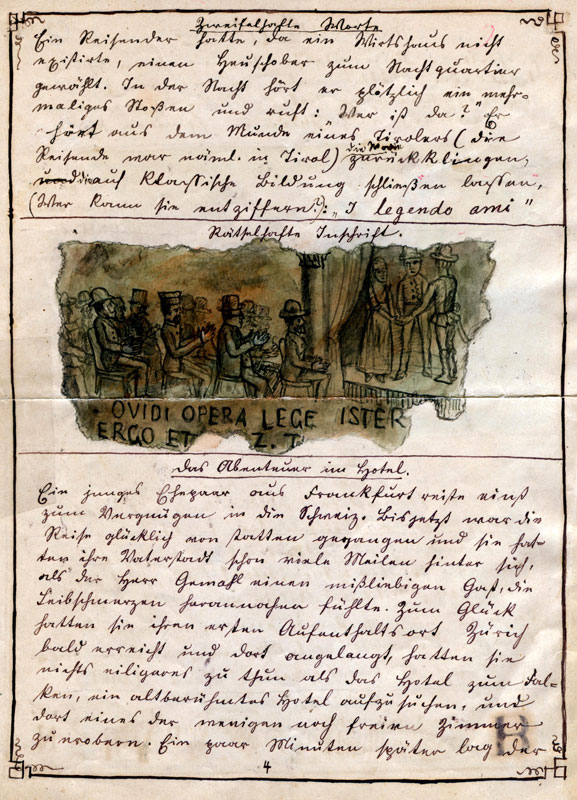 Zweifelhafte Worte
Ein Reisender hatte, da ein Wirtshaus nicht
existirte, einen Heuschober zum Nachtquartier
gewählt. In der Nacht hört er plötzlich ein mehr-
maliges Stoßen und ruft: "Wer ist da?" Er
hört aus dem Munde eines Tirolers (der
Reisende war näml. in Tirol) die Worte zurückklingen,
die auf klassische Bildung schließen lassen,
(Wer kann sie entziffern?): "I legendo ami"
Rätselhafte Inschrift.
OVIDI OPERA LEGE ISTER
ERGO ET Z. T
Das Abenteuer im Hotel.
Ein junges Ehepaar aus Frankfurt reiste einst
zum Vergnügen in die Schweiz. Bis jetzt war die
Reise glücklich von statten gegangen und sie hat-
ten ihre Vaterstadt schon viele Meilen hinter sich,
als der Herr Gemahl einen mißliebigen Gast, die
Leibschmerzen herannahen fühlte. Zum Glück
hatten sie ihren ersten Aufenthaltsort Zürich
bald erreicht und dort angelangt, hatten sie
nichts eiligeres zu thun als das Hotel zum Fal-
ken, ein altberühmtes Hotel aufzusuchen, und
dort eines der wenigen noch freien Zimmer
zu erobern. Ein paar Minuten später lag der
4